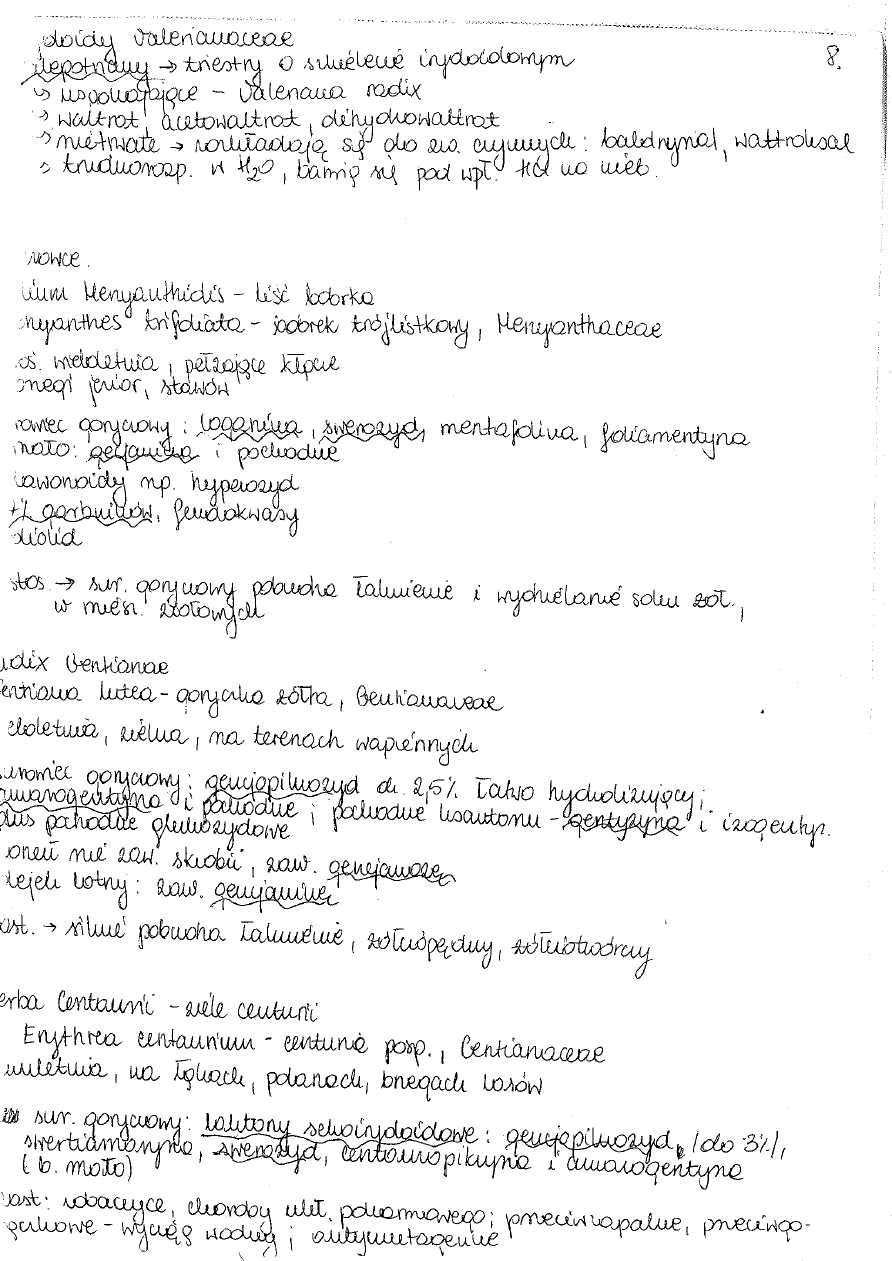 8.
doidy Valerianaceae
lepotriaty → triestry o szkielecie irydoidowym
↳ uspokajające – Valeriana radix
↳ waltrat, acetowaltrat, dihydrowaltrat
↳ nietrwałe → rozkładają się do zw. czynnych: baldrynal, waltroksal
↳ trudnorozp. w H₂O, barwią się pod wpł. HCl na nieb.
rowce.
lium Menyanthidis – liść bobrka
nyanthes trifoliata – bobrek trójlistkowy, Menyanthaceae
oś. wieloletnia, pełzające kłącze
rzegi jezior, stawów
rowiec goryczowy: loganina, swerozyd, mentafolina, foliamentyna
mało: gencjanina i pochodne
lawonoidy np. hyperozyd
garbników, fenolokwasy
liolid
stos. → sur. goryczowy pobudza łaknienie i wydzielanie soku żoł.,
w miesz. ziołowych
adix Gentianae
entiana lutea – goryczka żółta, Gentianaceae
eloletnia, zielna, na terenach wapiennych
surowiec goryczowy: gencjopikrozyd do 2,5% łatwo hydrolizujący;
amarogentyna i pochodne i pochodne ksantonu – gentyzyna i izogentyz.
plus pochodne glukozydowe
orzeń nie zaw. skrobii, zaw. gencjanozę
lejek lotny: zaw. gencjaninę
ast. → silnie pobudza łaknienie, żółciopędny, żółciotwórczy
erba Centaurii – ziele centurii
Erythrea centaurium – centuria posp., Gentianaceae
wuletnia, na łąkach, polanach, brzegach lasów
sur. goryczowy: laktony sekoirydoidowe: gencjopikrozyd, (do 3%),
swertiamaryna, swerozyd, centauropikryna i amarogentyna
(b. mało)
ast: robaczyce, choroby ukł. pokarmowego; przeciwzapalne, przeciwgo-
rączkowe – wyciąg wodny; antymutagenne